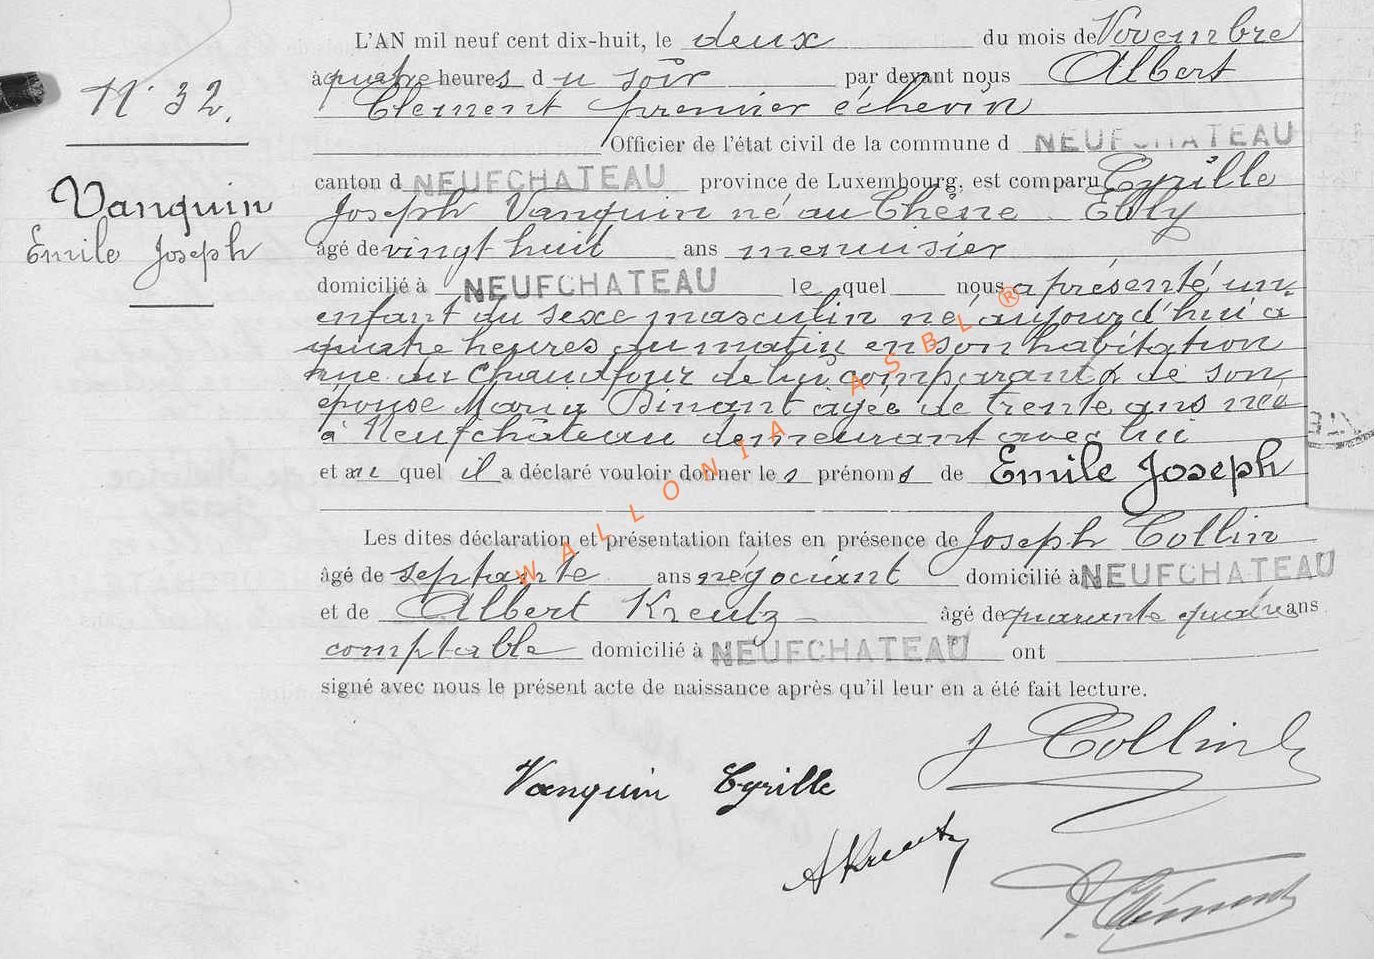 N° 32.
Vanquin
Emile Joseph
L'AN mil neuf cent dix-huit, le deux du mois de Novembre
à quatre heures du soir par devant nous Albert
Clement premier échevin
Officier de l'état civil de la commune d NEUFCHATEAU
canton d NEUFCHATEAU province de Luxembourg, est comparu Cyrille
Joseph Vanquin né au Chêne Ebly
âgé de vingt huit ans menuisier
domicilié à NEUFCHATEAU le quel nous a présenté un
enfant du sexe masculin né aujourd'hui à
quatre heures du matin en son habitation
rue du Chaudfour de lui comparant & de son
épouse Maria Dinant agée de trente ans née
à Neufchâteau demeurant avec lui
et au quel il a déclaré vouloir donner les prénoms de Emile Joseph
Les dites déclaration et présentation faites en présence de Joseph Collin
âgé de septante ans négociant domicilié à NEUFCHATEAU
et de Albert Kreutz âgé de quarante quatre ans
comptable domicilié à NEUFCHATEAU ont
signé avec nous le présent acte de naissance après qu'il leur en a été fait lecture.
J Collin
Vanquin Cyrille
A Kreutz
A. Clément
WALLONIA ASBL ®